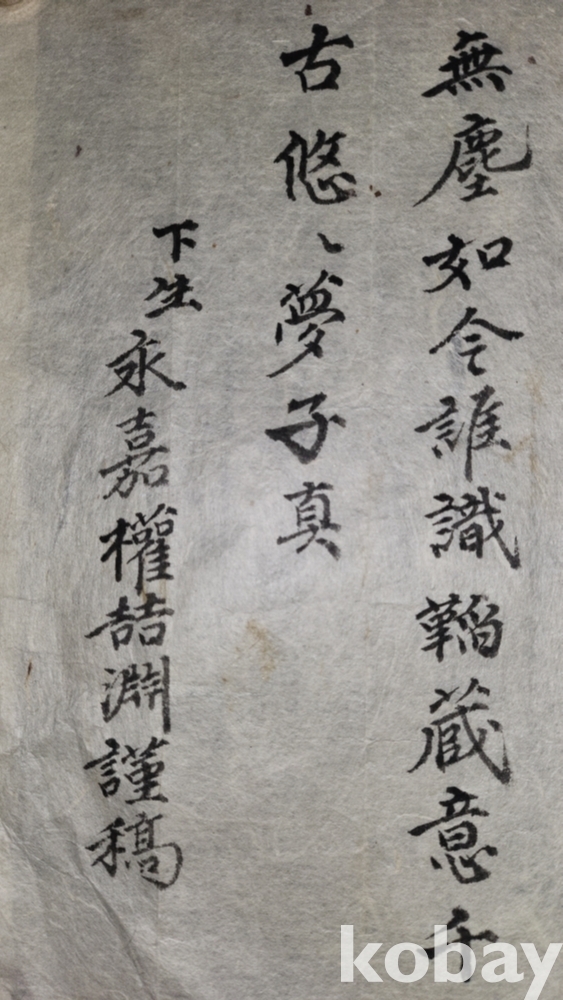 無塵如今誰識韜蔵意千
古悠〻夢子真
下生永嘉權喆淵謹稿
kobay